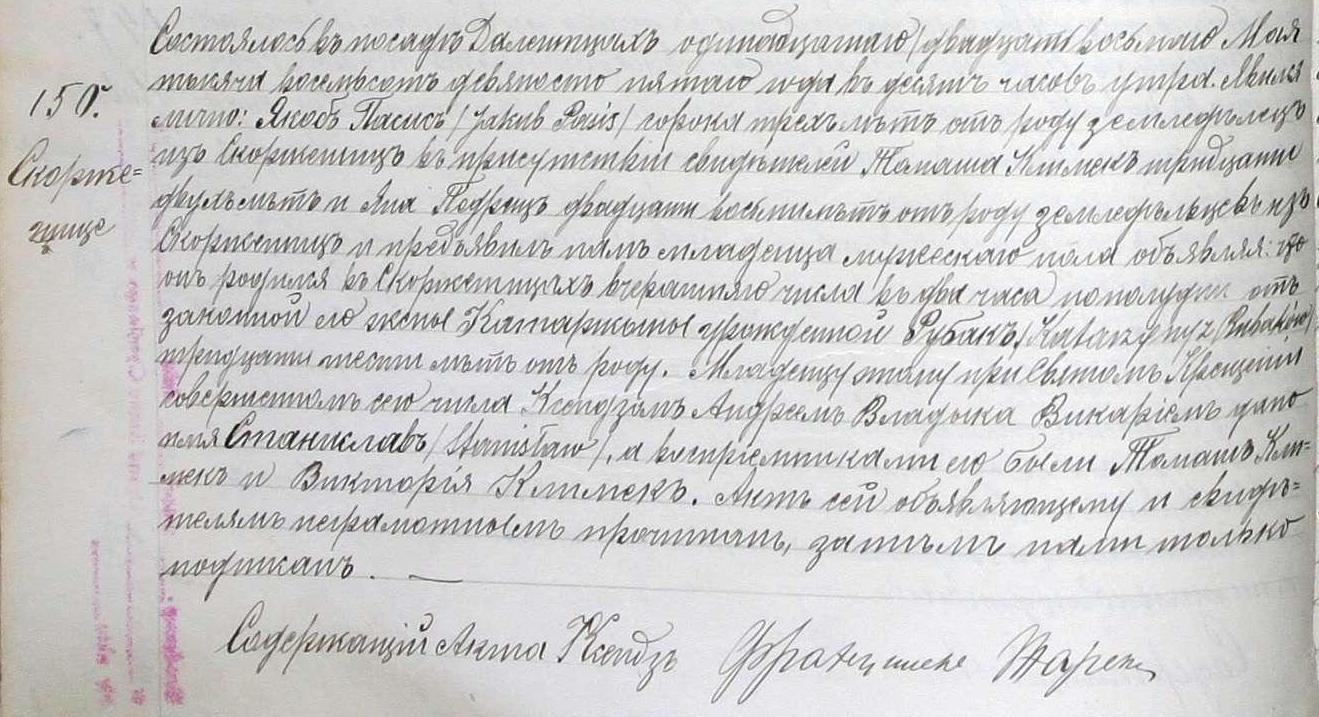 Состоялось въ посадѣ Далешицахъ одинадцатаго / двадцать восьмаго Мая
тысяча восемьсотъ девяносто пятаго года въ десять часовъ утра. Явился
150.
лично: Якобъ Пасисъ / Jakub Pasis / сорока трехъ лѣтъ отъ роду земледѣлецъ
Скорже=
изъ Скоржешицъ въ присутствіи свидѣтелей Томаша Климекъ тридцати
двухъ лѣтъ и Яна двадцати восьми лѣтъ отъ роду земледѣльцевъ изъ
щице
Скоржешицъ и предъявилъ намъ младенца мужескаго пола объявляя: что
онъ родился въ Скоржешицахъ вчерашняго числа въ два часа пополудни отъ
законной его жены Катаржыны урожденной Рубакъ / Katarzyny z Rubaków /
тридцати шести лѣтъ отъ роду. Младенцу этому при Святомъ Крещеніи
совершенномъ сего числа Ксендзомъ Андреемъ Владыка Викаріемъ дано
имя Станиславъ / Stanisław /, а воспріемниками его были Томашъ Кли=
мекъ и Викторія Климекъ. Актъ сей объявляющему и свидѣ=
телямъ неграмотнымъ прочитанъ, затѣмъ нами только
подписанъ. —
Содержащій Акта Ксендзъ